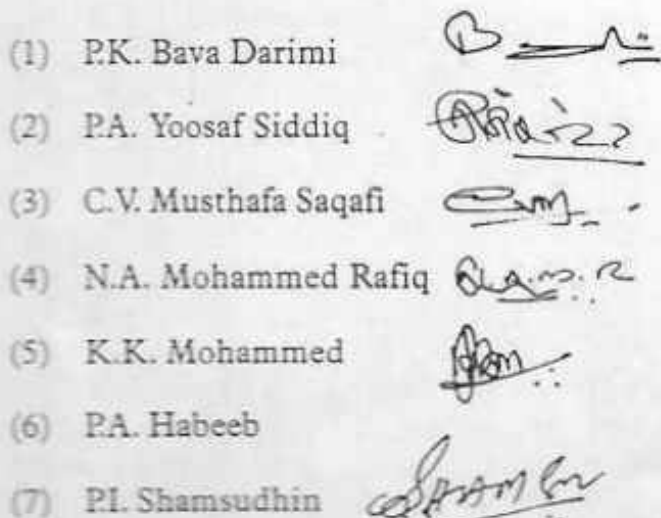 (1) P.K. Bava Darimi
(2) P.A. Yoosaf Siddiq
(3) C.V. Musthafa Saqafi
(4) N.A. Mohammed Rafiq
(5) K.K. Mohammed
(6) P.A. Habeeb
(7) P.I. Shamsudhin